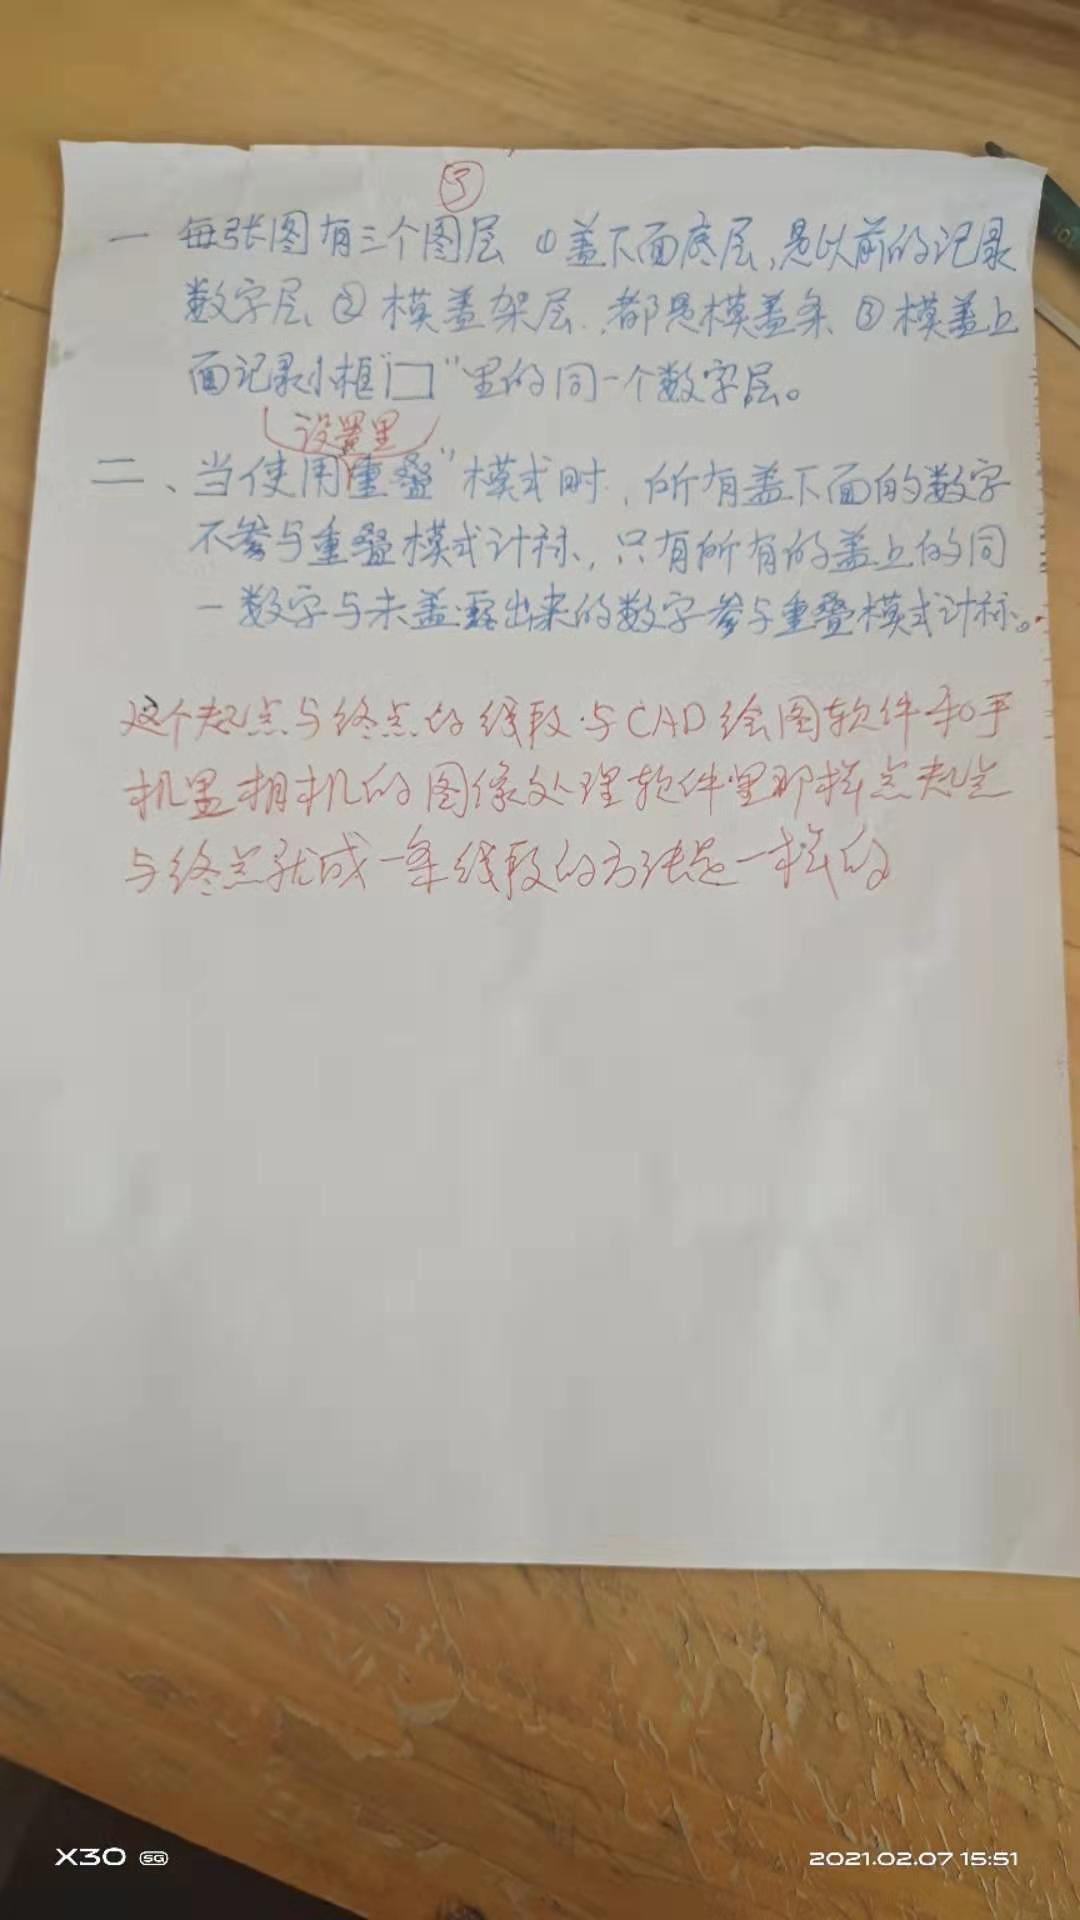 ⑤
一 每张图有三个图层 ①盖下面底层,是以前的记录
数字层、②模盖架层、都是模盖条 ③模盖上
面记录小框"口"里的同一个数字层。
设置里
二、当使用重叠"模式时,所有盖下面的数字
不参与重叠模式计标、只有所有的盖上的同
一数字与未盖露出来的数字参与重叠模式计标。
这个起点与终点的线段与CAD绘图软件和手
机里相机的图像处理软件里那样点起点
与终点就成一条线段的方法是一样的
X30 5G
2021.02.07 15:51